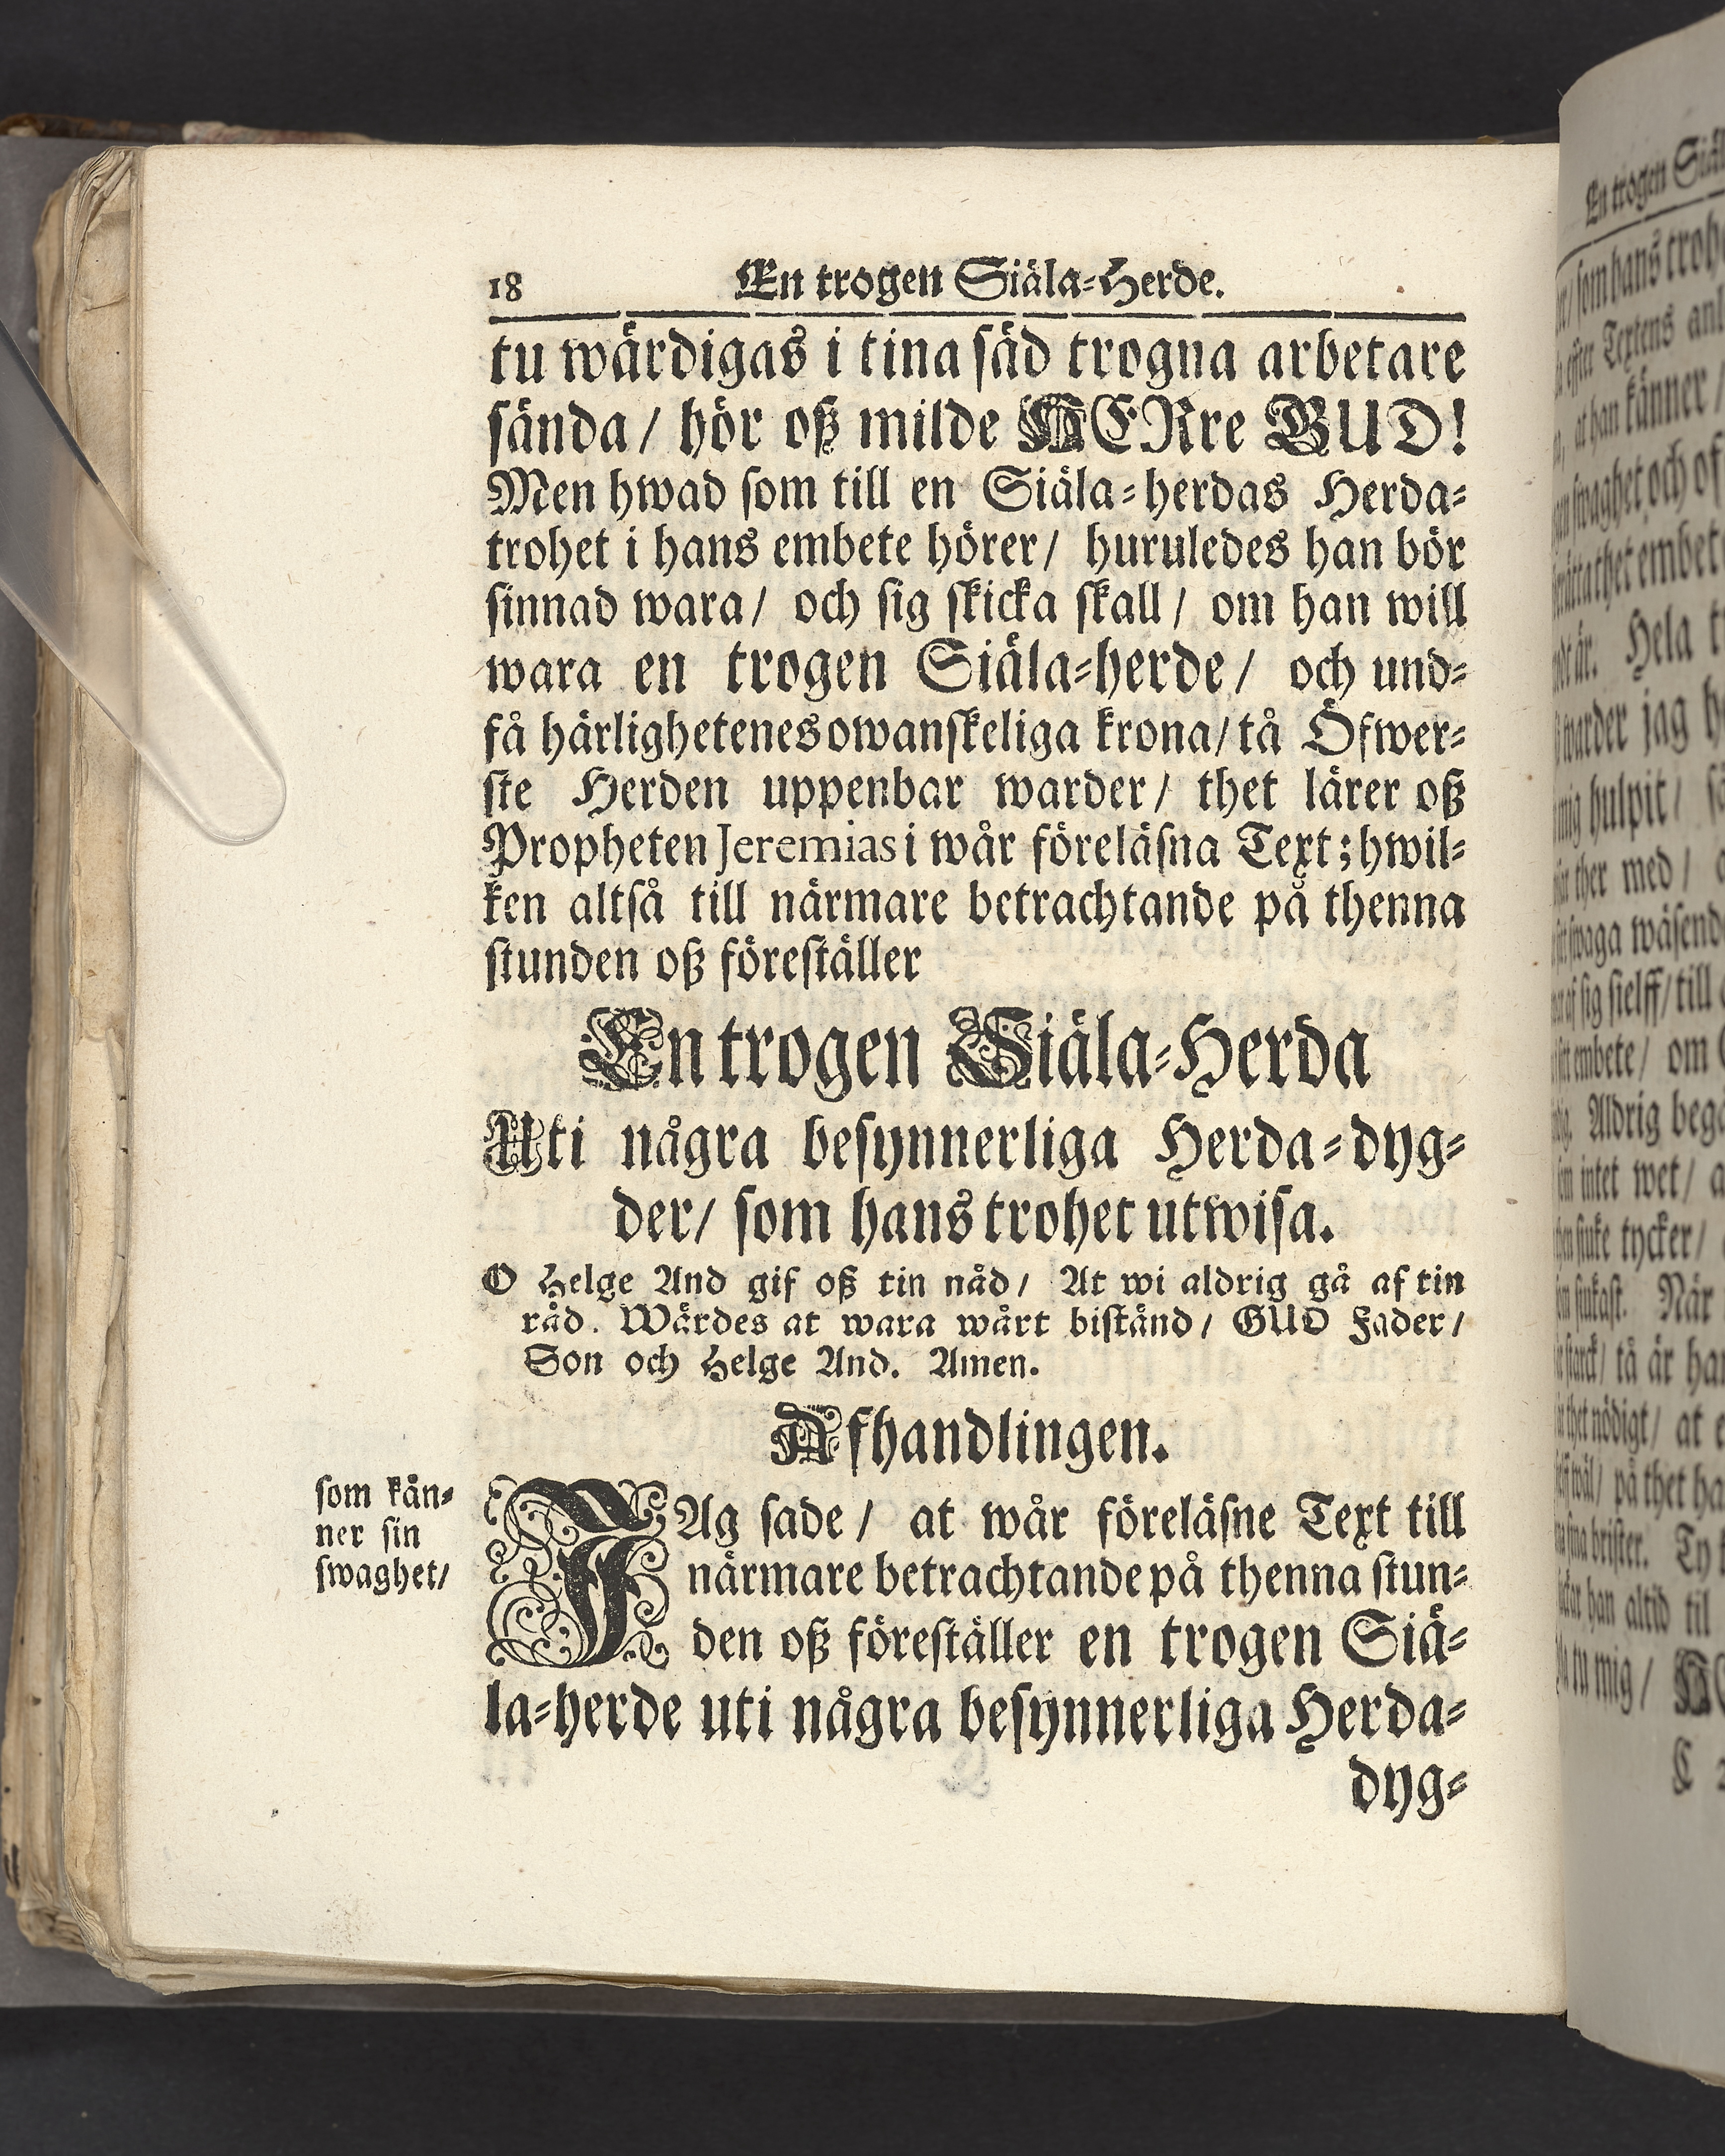 18 En trogen Siäla-Herde.
tu wärdigas i tina säd trogna arbetare
sända / hör oß milde HERre GUD!
Men hwad som till en Siäla-herdas Herda-
trohet i hans embete hörer / huruledes han bör
sinnad wara / och sig skicka skall / om han will
wara en trogen Siäla-herde / och und-
få härlighetenes owanskeliga krona / tå Öfwer-
ste Herden uppenbar warder / thet lärer oß
Propheten Jeremias i wår föreläsna Text; hwil-
ken altså till närmare betrachtande på thenna
stunden oß föreställer
En trogen Siäla-Herda
Uti några besynnerliga Herda-dyg-
der / som hans trohet utwisa.
O Helge And gif oß tin nåd / At wi aldrig gå af tin
råd. Wärdes at wara wårt biständ / GUD Fader /
Son och Helge And. Amen.
Afhandlingen.
som kån-
ner sin
swaghet /
JAg sade / at wår föreläsne Text till
närmare betrachtande på thenna stun-
den oß föreställer en trogen Siä-
la-herde uti några besynnerliga Herda-
dyg-
En trogen
som hans
Textens
at han känner /
swaghet och
embet
är. Hela
warder jag
mig hulpit /
ther med /
swaga
af sig sielff / till
embete / om
Aldrig
intet wet /
tycker /
När
starck / tå är
thet nödigt / at
wäl / på thet
sina brister. Ty
han altid til
tu mig /
C